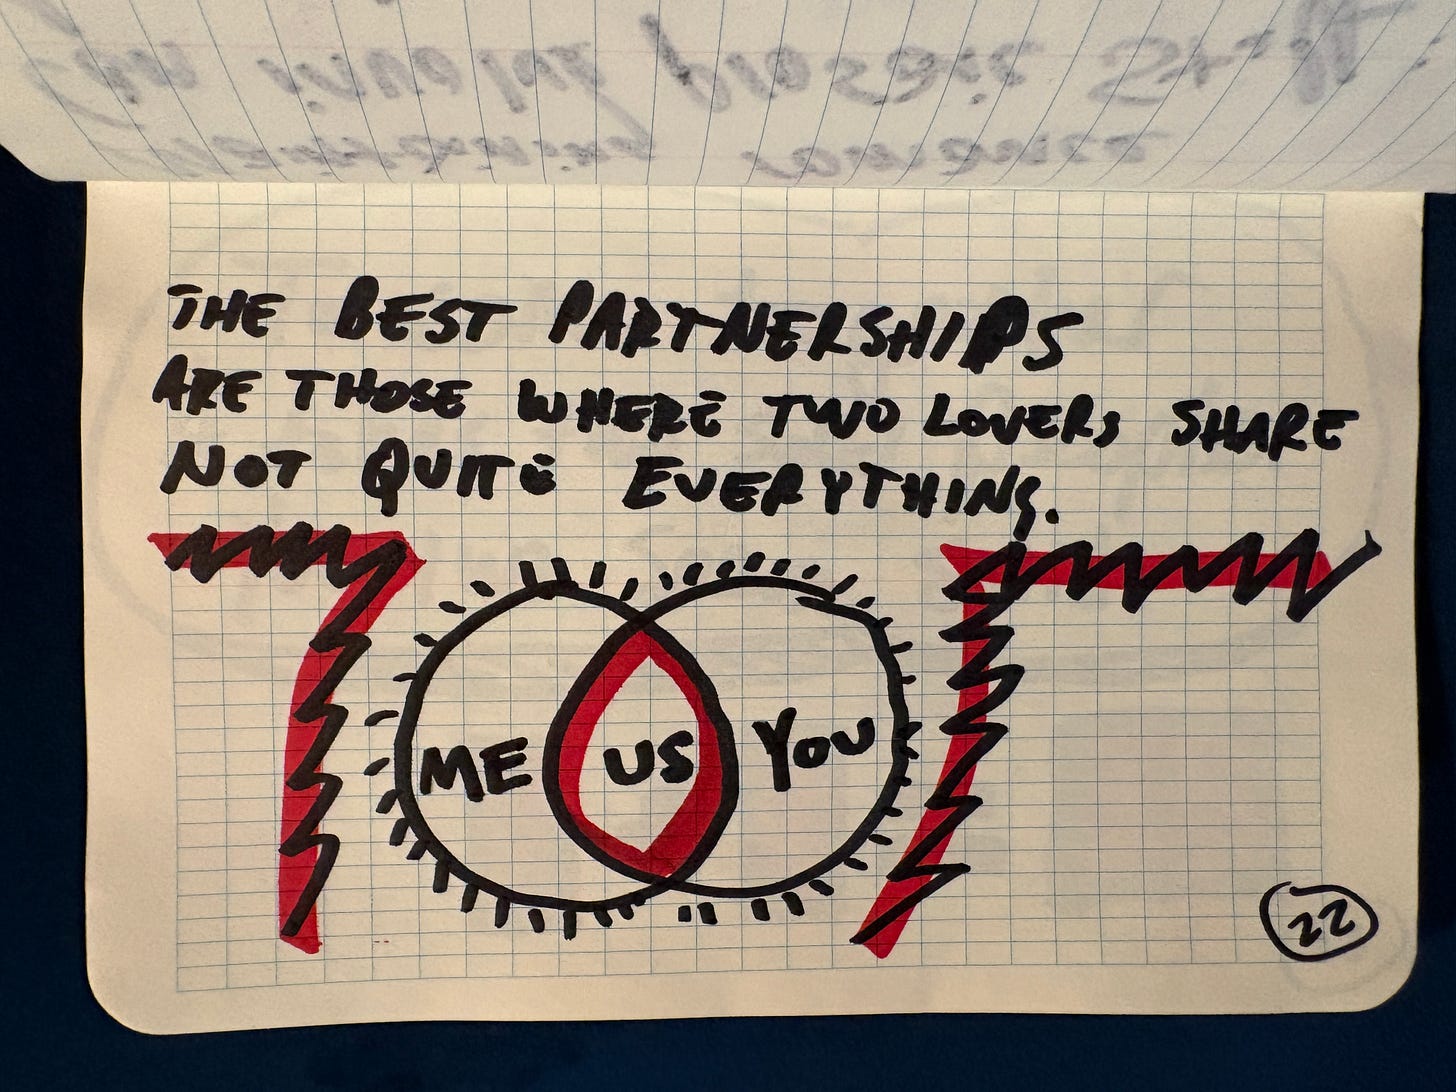 THE BEST PARTNERSHIPS
ARE THOSE WHERE TWO LOVERS SHARE
NOT QUITE EVERYTHING.
ME US YOU
22